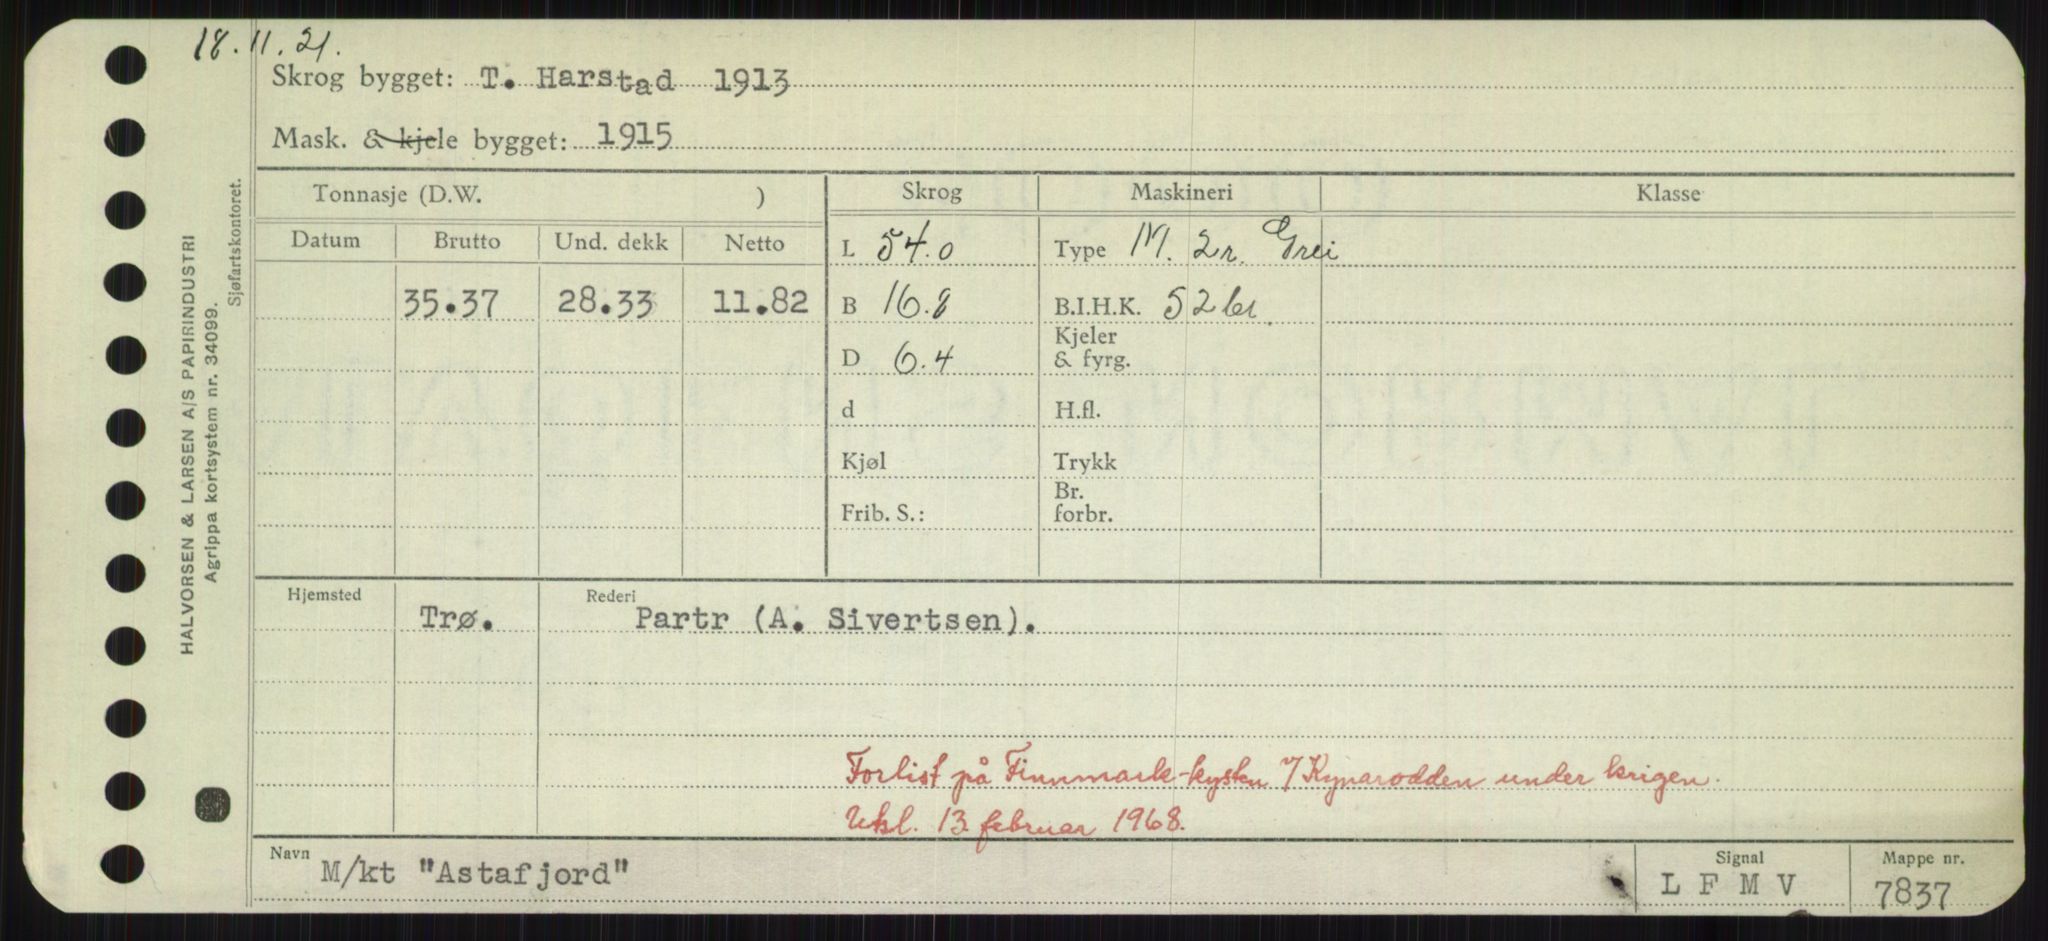 18.11.21.
Skrog bygget: T. Harstad 1913
Mask. & kjele bygget: 1915
Tonnasje (D.W. ) Skrog Maskineri Klasse
Datum Brutto Und. dekk Netto L 54.0 Type M. 2r. Grei
35.37 28.33 11.82 B 16.8 B.I.H.K. 52
Kjeler
D 6.4 & fyrg.
d H.fl.
Kjøl Trykk
Br.
Frib. S.: forbr.
Hjemsted Rederi
Trø. Partr (A. Sivertsen).
Forlist på Finnmark-kysten v/ Kynarodden under krigen.
Utsl. 13. februar 1968.
Navn Signal Mappe nr.
M/kt "Astafjord" L F M V 7837
HALVORSEN & LARSEN A/S PAPIRINDUSTRI
Agrippa kortsystem nr. 34099.
Sjøfartskontoret.